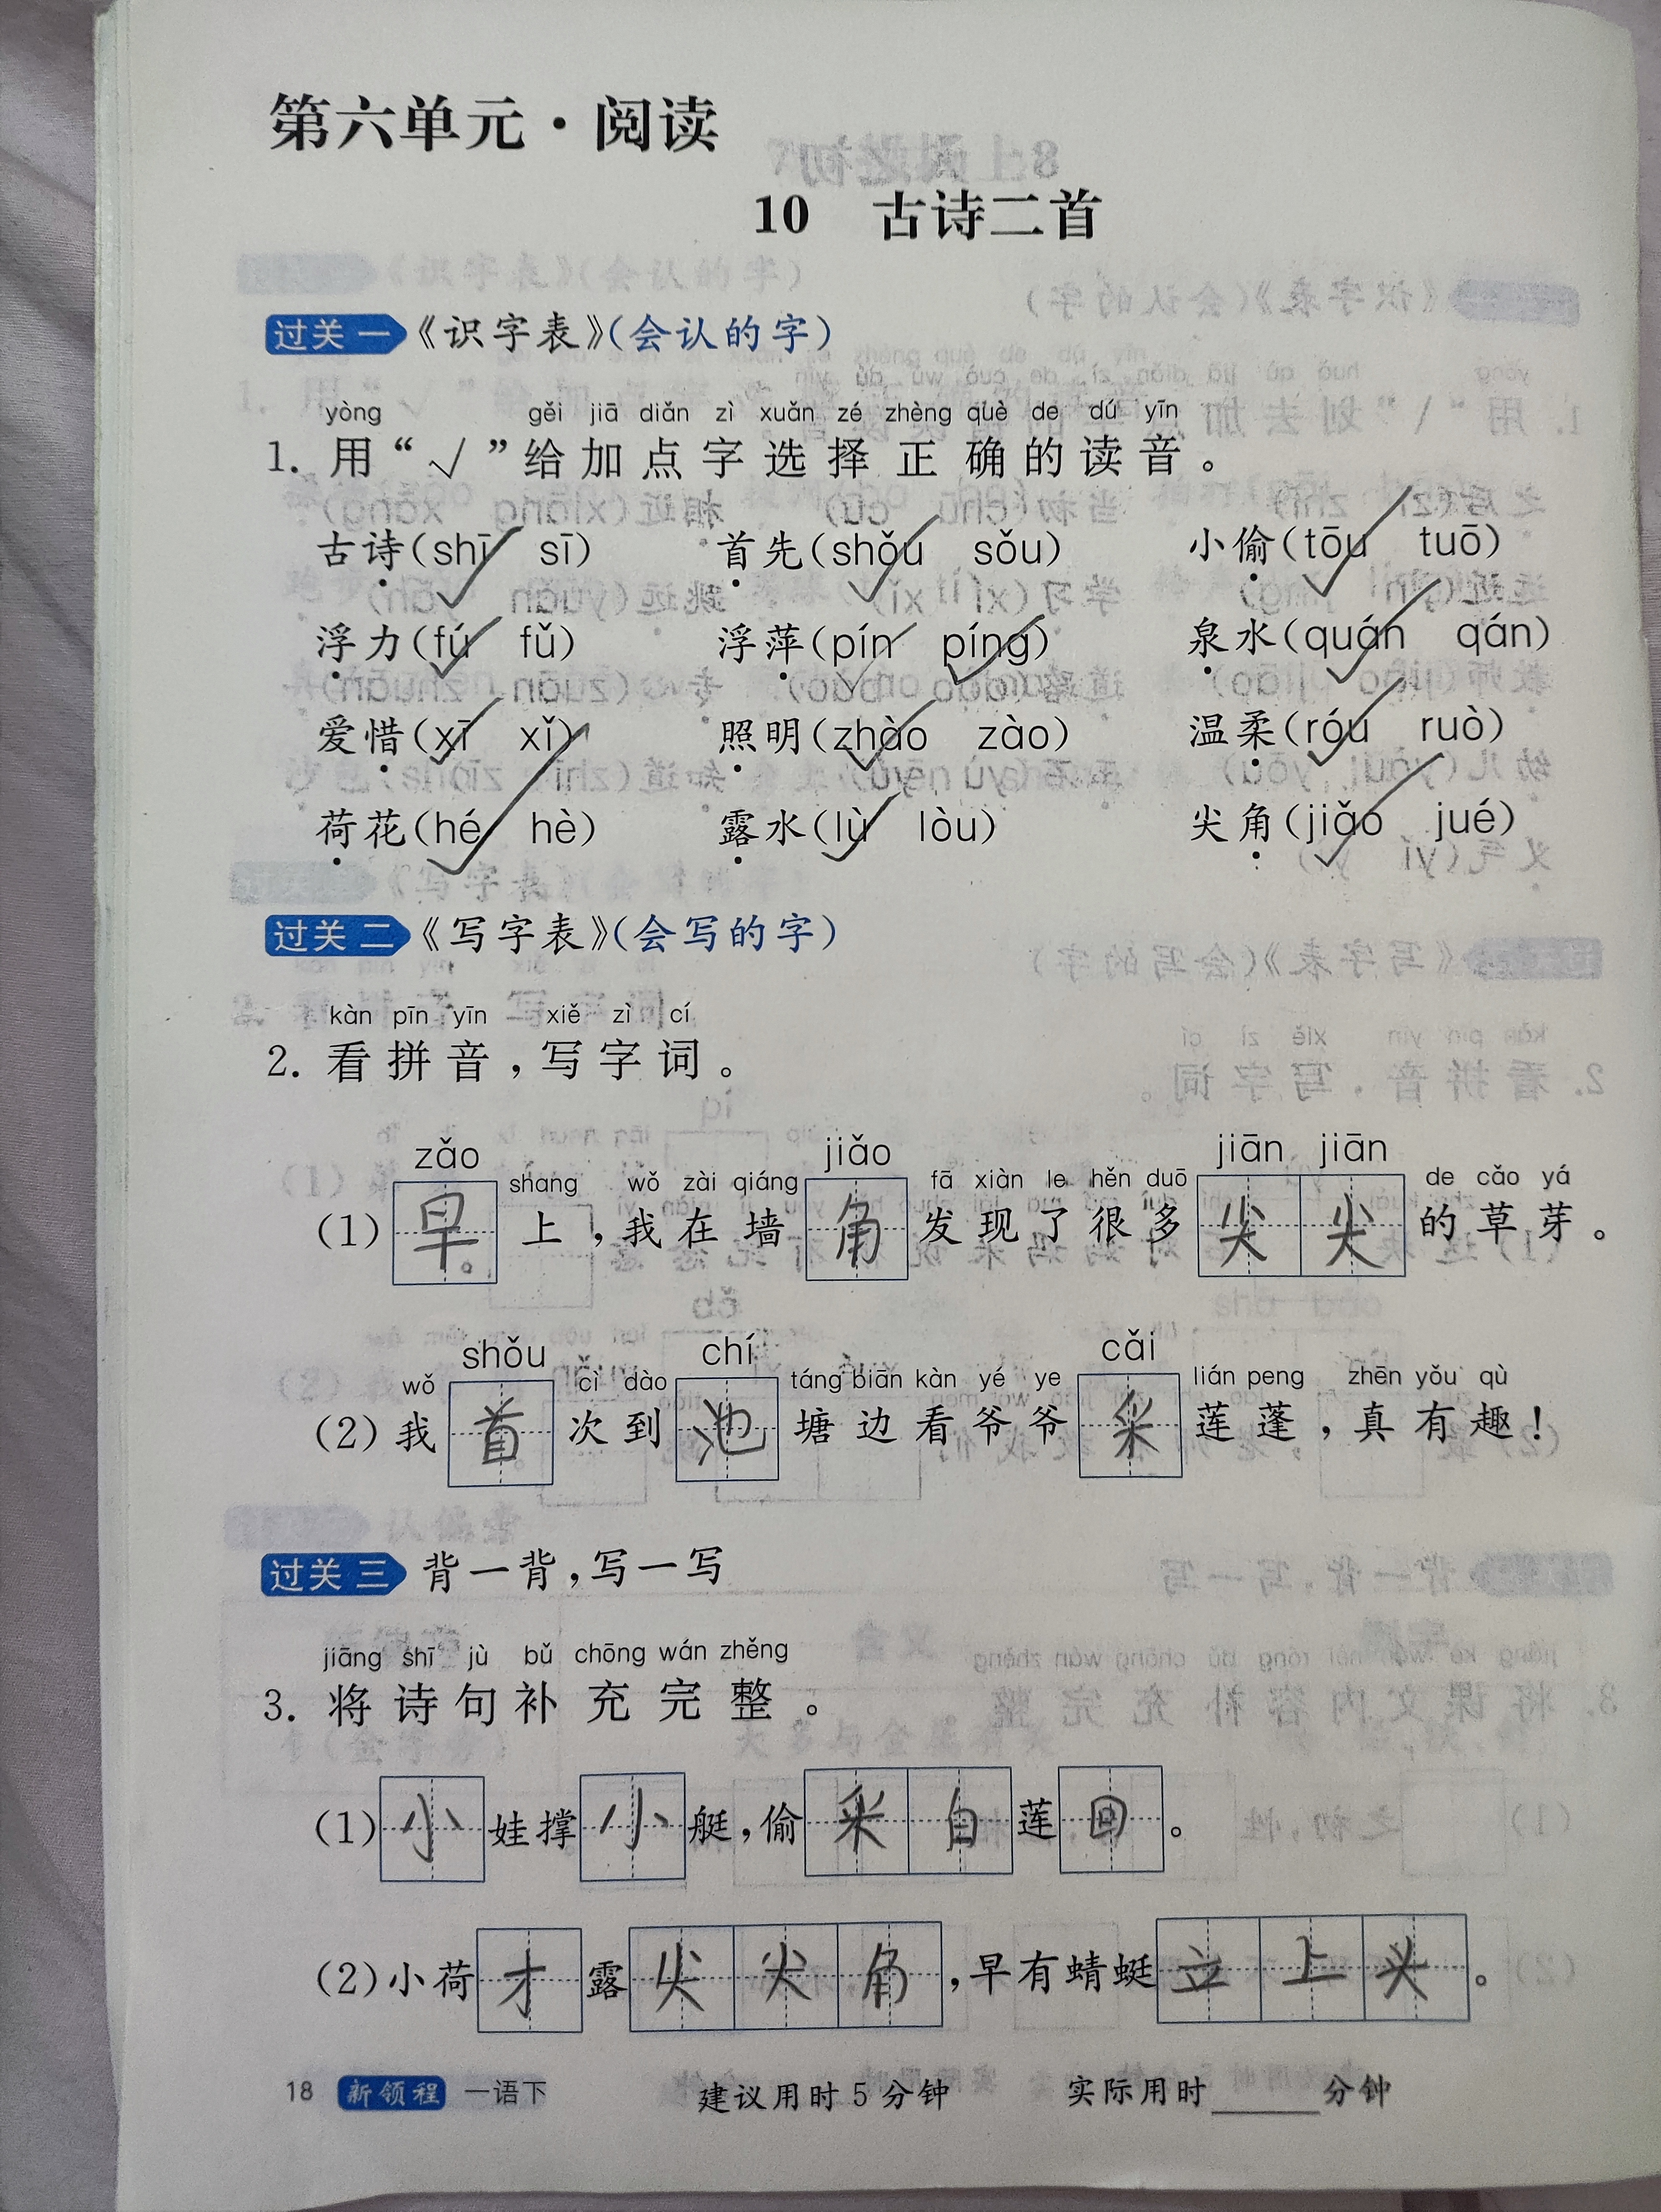 第六单元·阅读
10 古诗二首
过关 一 《识字表》(会认的字)
yòng gěi jiā diǎn zì xuǎn zé zhèng què de dú yīn
1. 用“√”给加点字选择正确的读音。
古诗(shī sī) 首先(shǒu sǒu) 小偷(tōu tuō)
浮力(fú fǔ) 浮萍(pín píng) 泉水(quán qán)
爱惜(xī xǐ) 照明(zhào zào) 温柔(róu ruò)
荷花(hé hè) 露水(lù lòu) 尖角(jiǎo jué)
过关 二 《写字表》(会写的字)
kàn pīn yīn xiě zì cí
2. 看拼音,写字词。
zǎo shang wǒ zài qiáng jiǎo fā xiàn le hěn duō jiān jiān de cǎo yá
(1) 早上,我在墙角发现了很多尖尖的草芽。
wǒ shǒu cì dào chí táng biān kàn yé ye cǎi lián peng zhēn yǒu qù
(2) 我首次到池塘边看爷爷采莲蓬,真有趣!
过关 三 背一背,写一写
jiāng shī jù bǔ chōng wán zhěng
3. 将诗句补充完整。
(1) 小娃撑小艇,偷采白莲回。
(2) 小荷才露尖尖角,早有蜻蜓立上头。
18 新领程 一语下 建议用时 5 分钟 实际用时______分钟